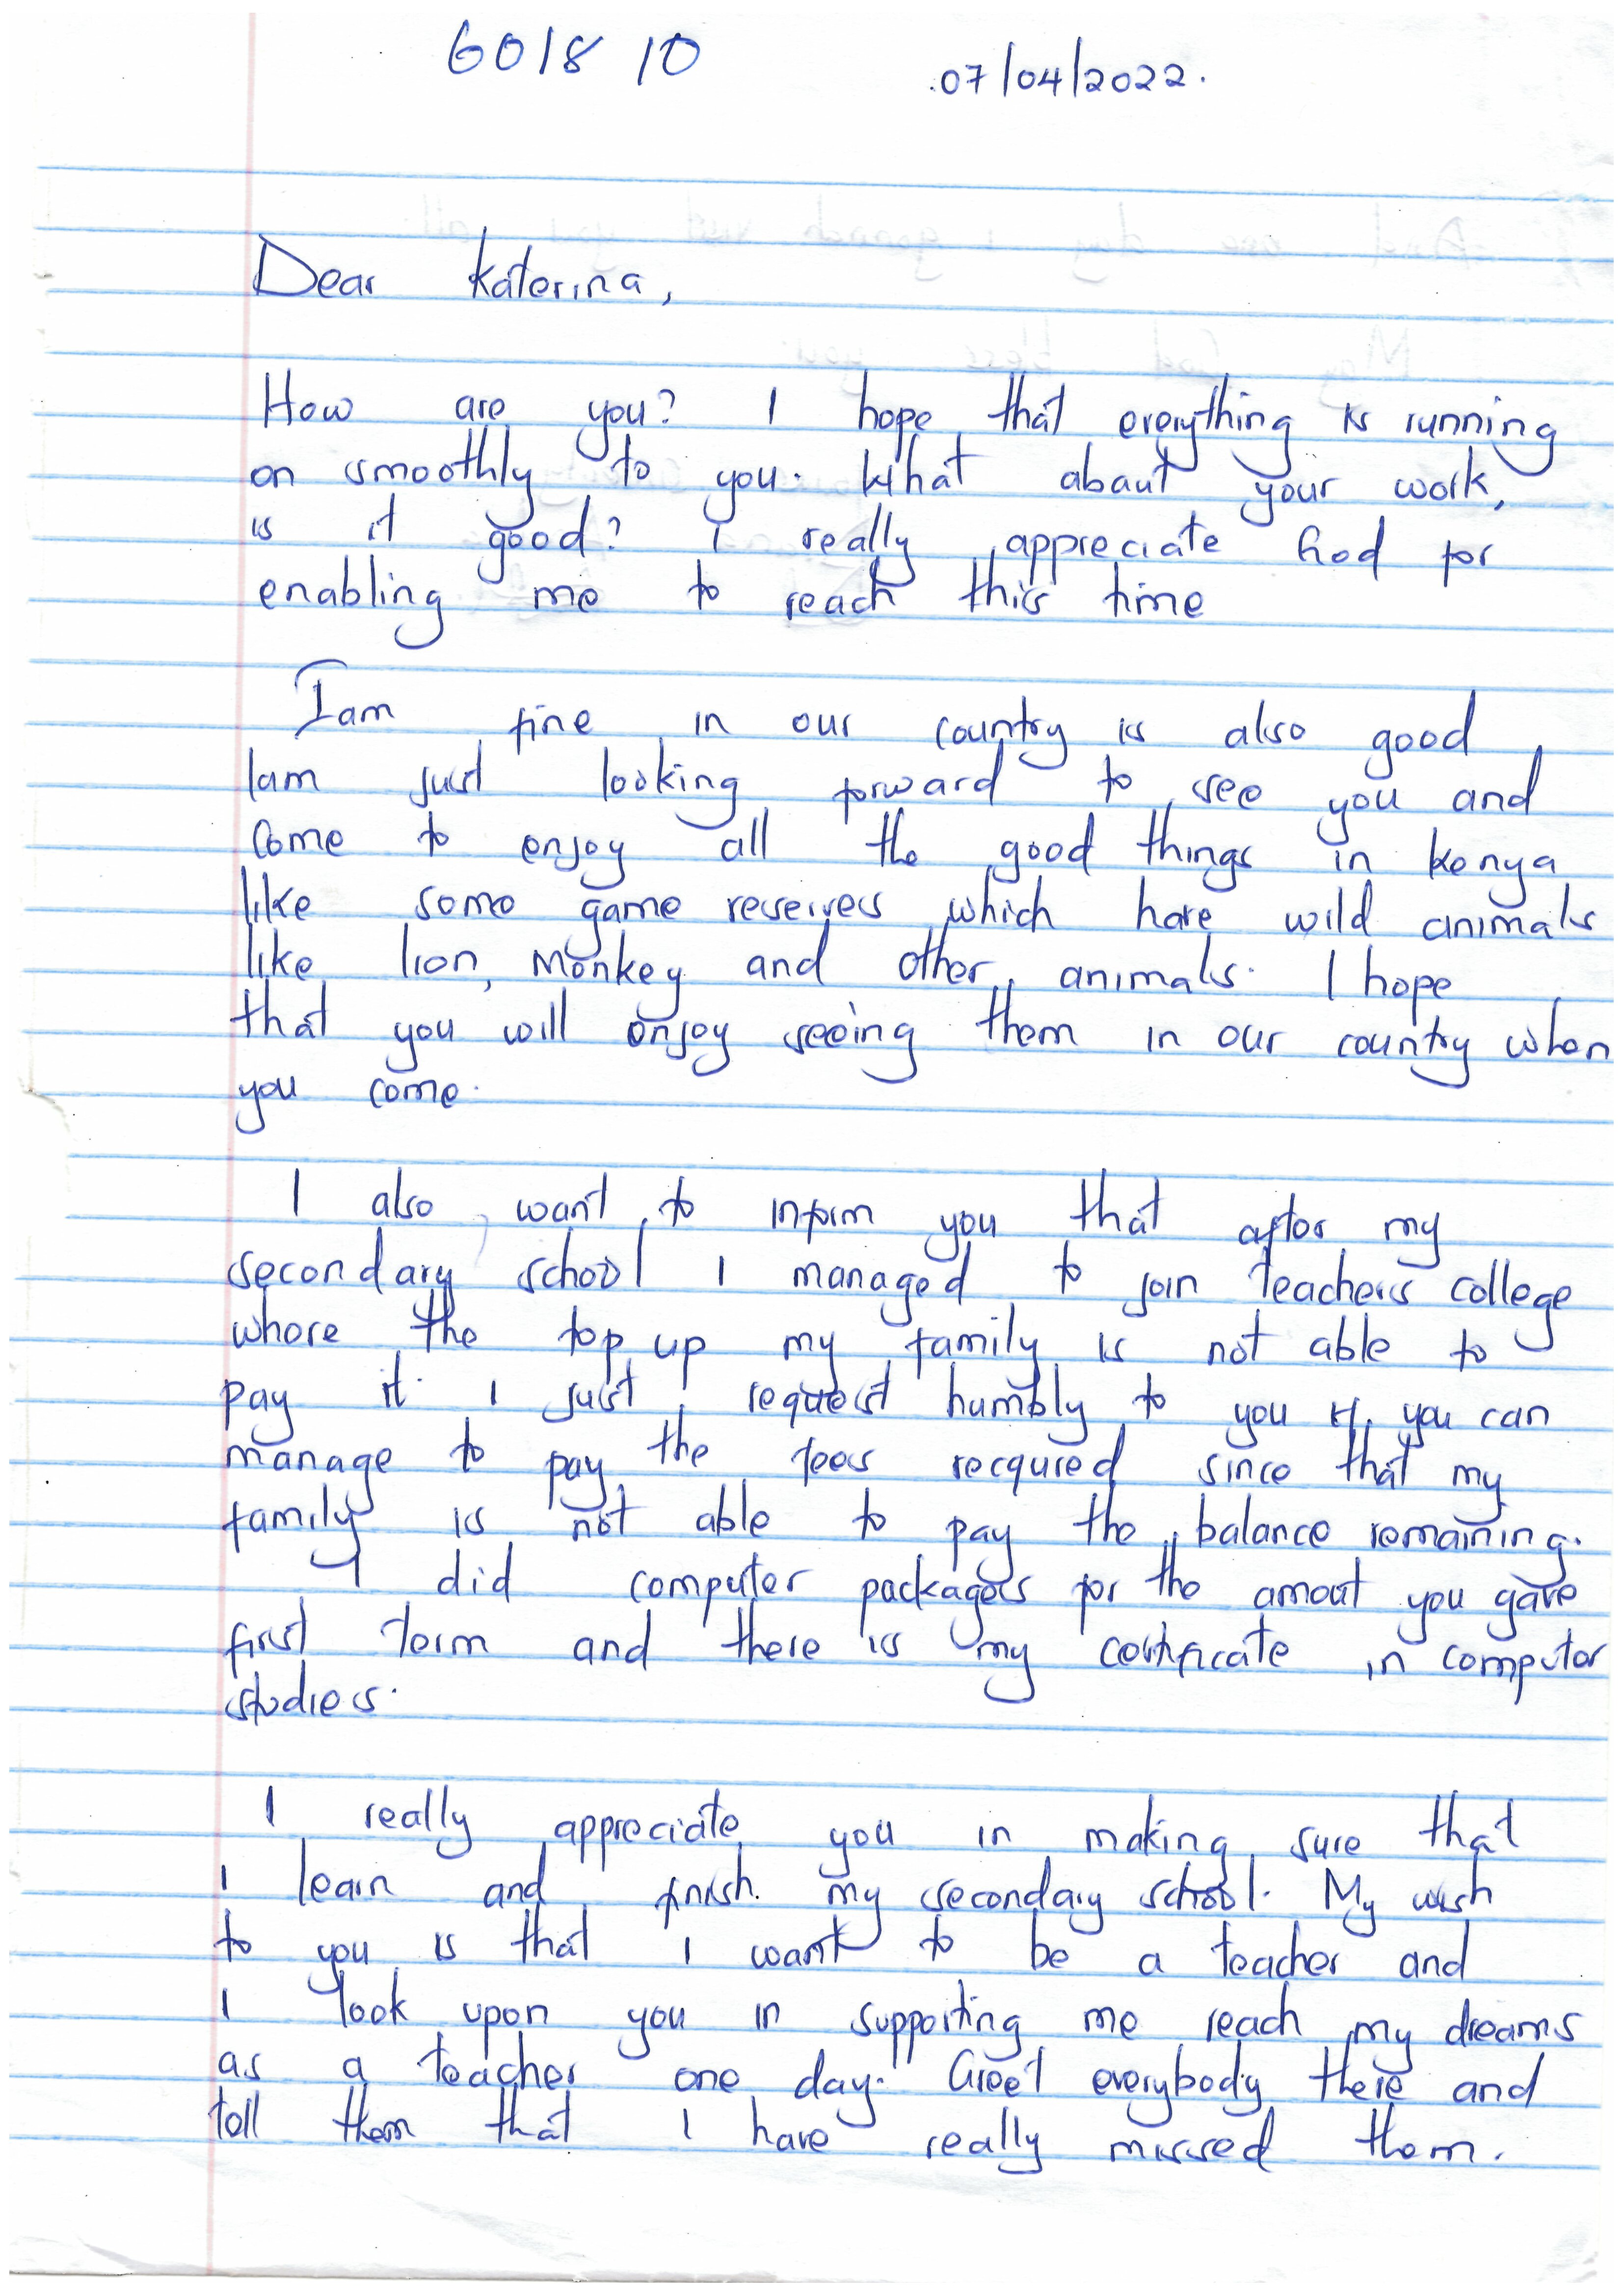 601810
07/04/2022.
Dear Katerina,
How are you? I hope that everything is running
on smoothly to you. What about your work,
is it good? I really appreciate God for
enabling me to reach this time
Iam fine in our country is also good,
Iam just looking forward to see you and
Come to enjoy all the good things in kenya
like some game reserves which have wild animals
like lion, monkey and other animals. I hope
that you will enjoy seeing them in our country when
you come.
I also want to inform you that after my
secondary school I managed to join teachers college
where the top up my family is not able to
pay it. I just request humbly to you if you can
manage to pay the fees recquired since that my
family is not able to pay the balance remaining.
I did computer packages for the amout you gave
first term and there is my certificate in computer
studies.
I really appreciate you in making sure that
I learn and finish my secondary school. My wish
to you is that I want to be a teacher and
I look upon you in supporting me reach my dreams
as a teacher one day. Greet everybody there and
tell them that I have really missed them.